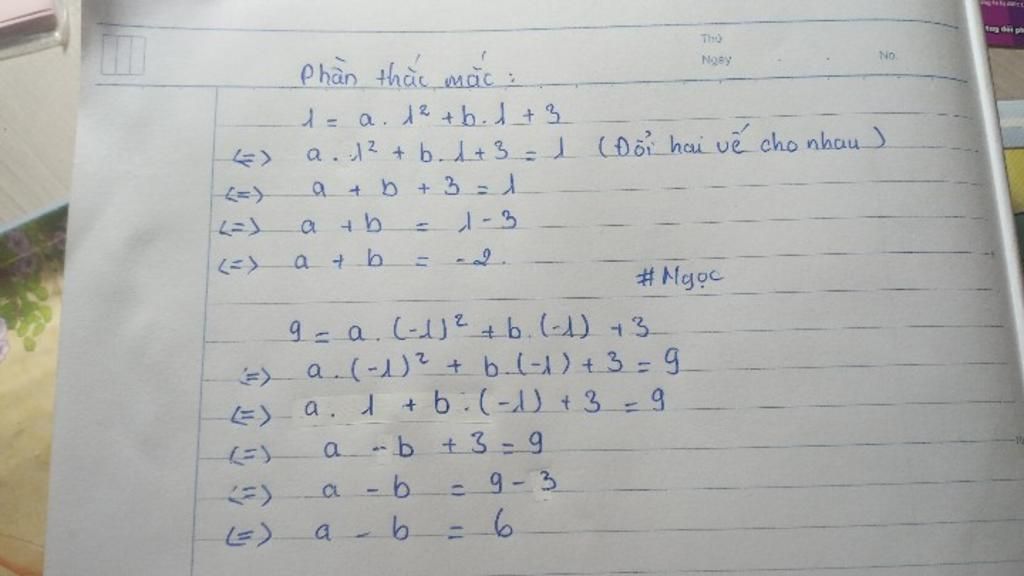 Thứ
Ngày . . No.
Phần thắc mắc :
1 = a . 1² + b . 1 + 3
<=> a . 1² + b . 1 + 3 = 1 (Đổi hai vế cho nhau)
<=> a + b + 3 = 1
<=> a + b = 1 - 3
<=> a + b = -2.
#Ngọc
9 = a . (-1)² + b . (-1) + 3
<=> a . (-1)² + b . (-1) + 3 = 9
<=> a . 1 + b . (-1) + 3 = 9
<=> a - b + 3 = 9
<=> a - b = 9 - 3
<=> a - b = 6